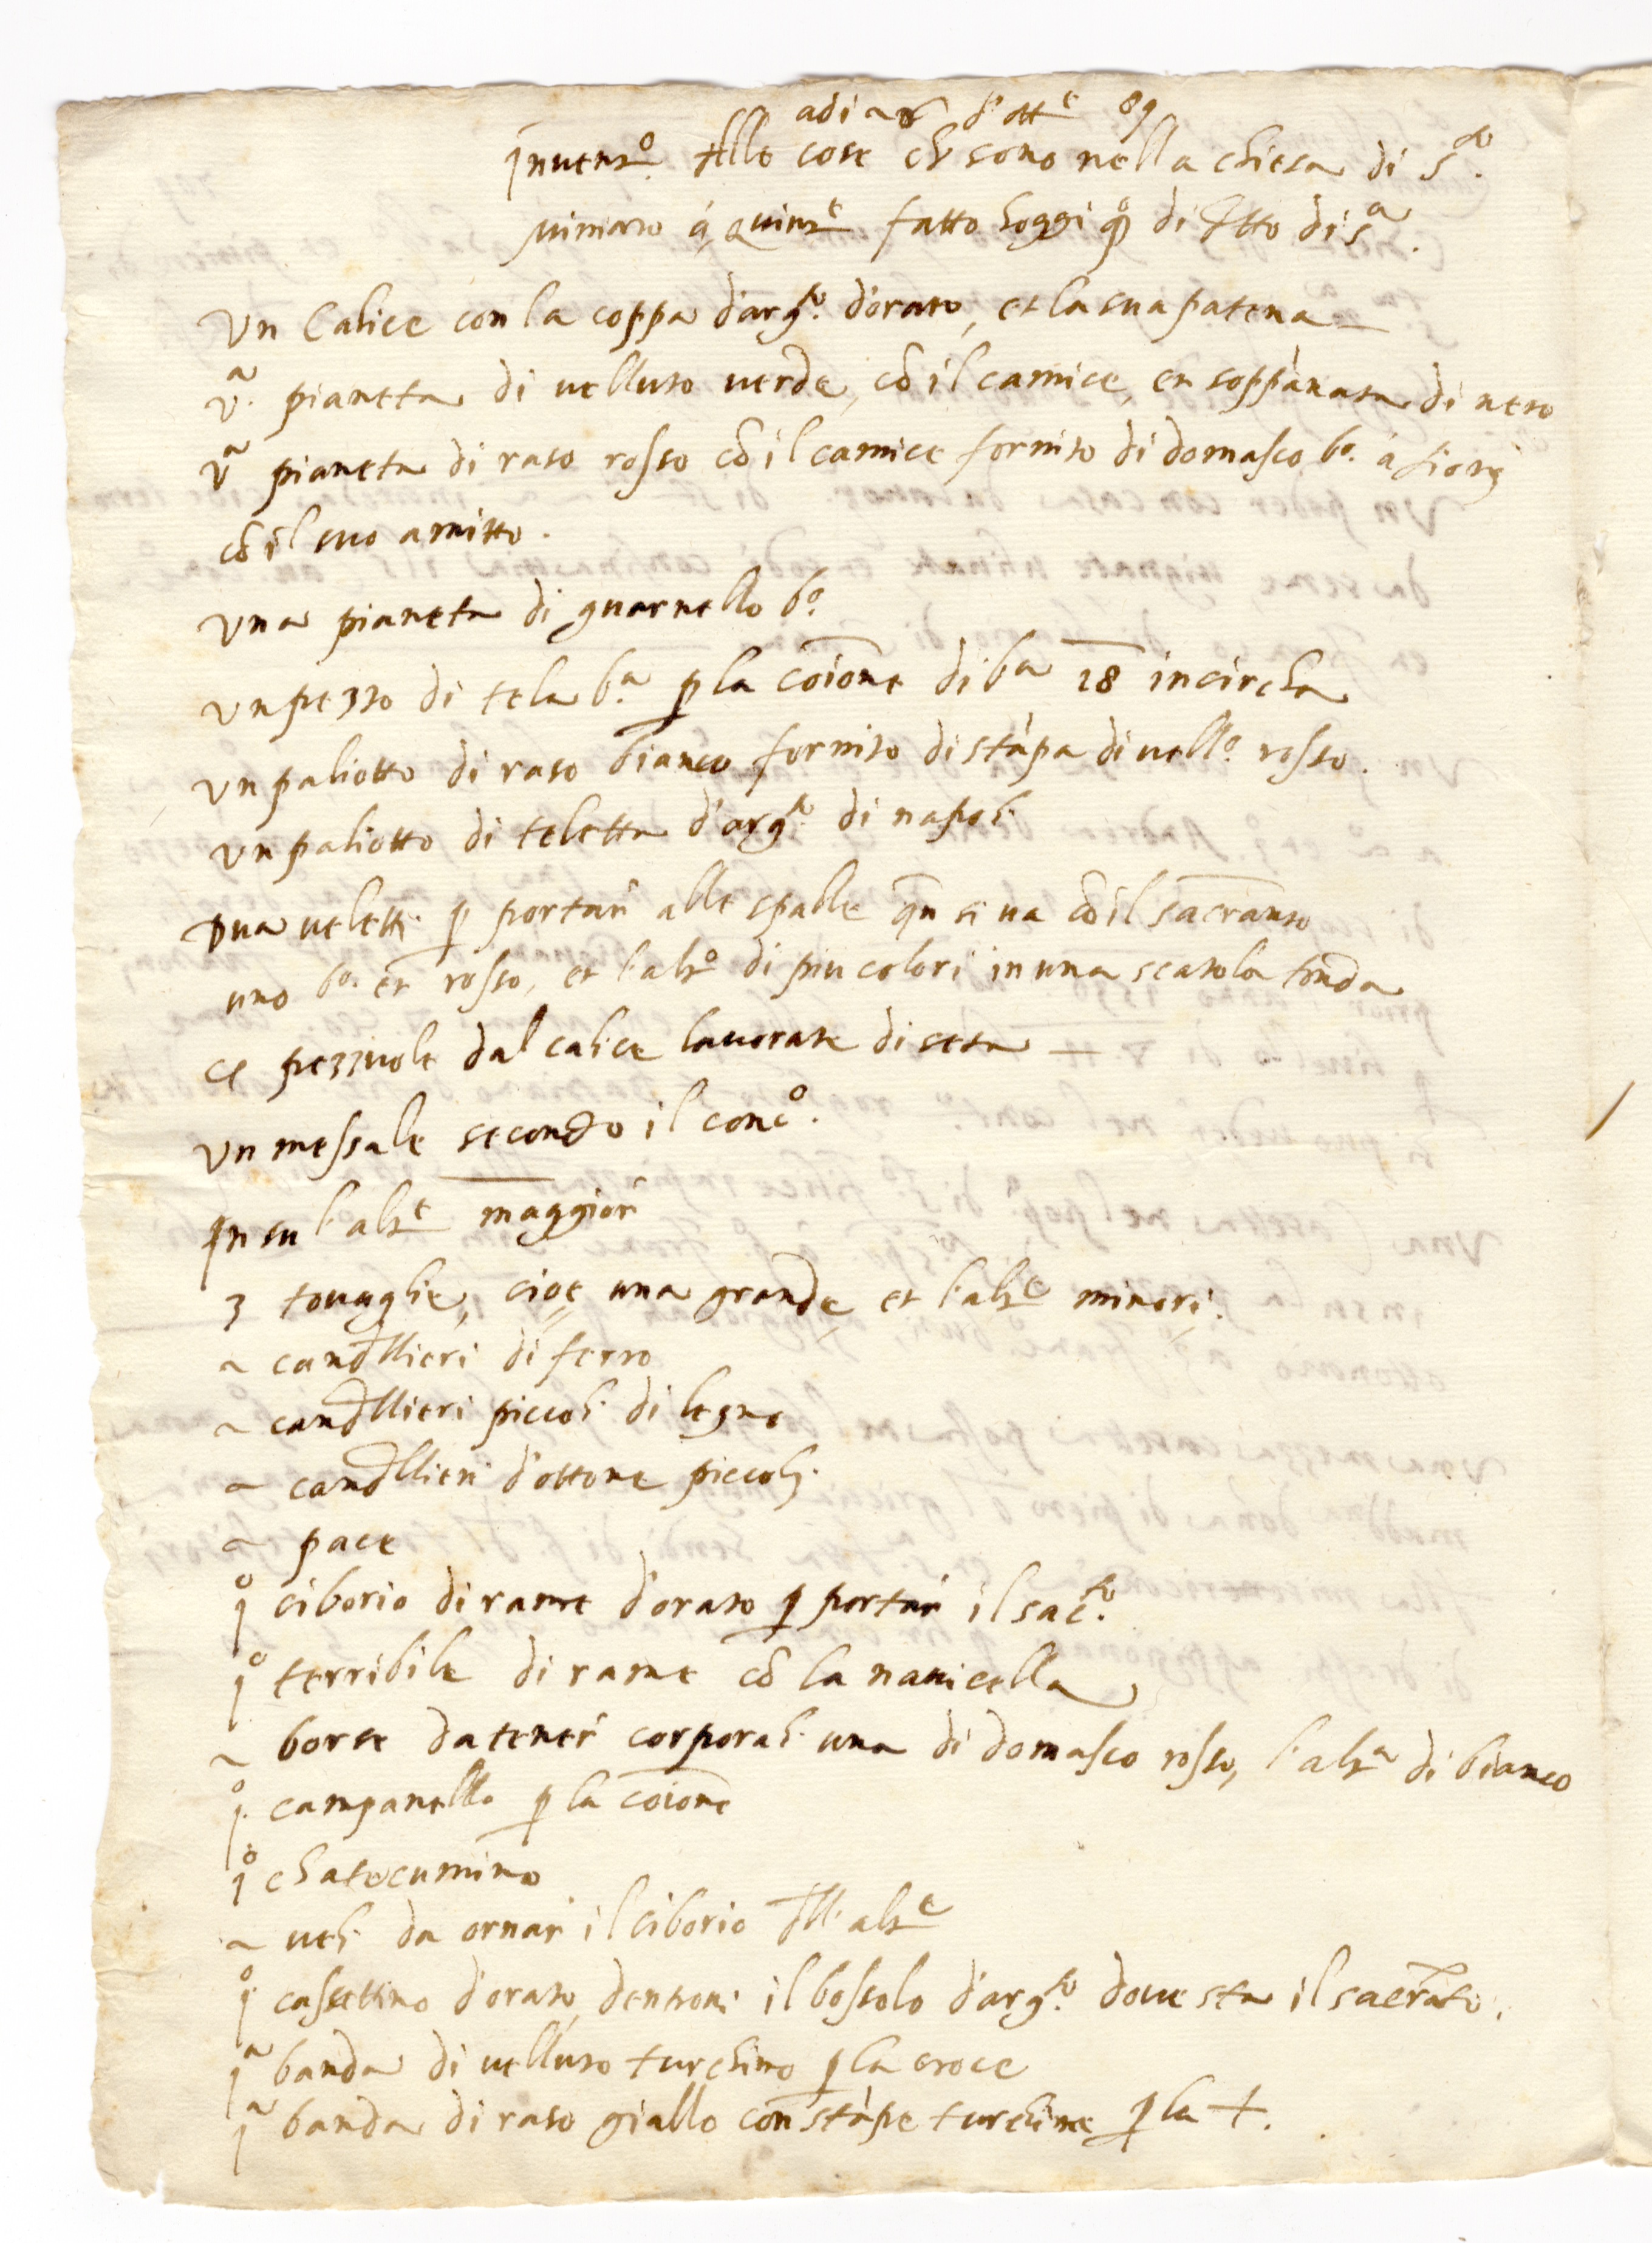 adi 26 d'ott.e 89
Invent.o delle cose ch sono nella chiesa di S.to
miniato à Quint.e fatto hoggi q.o di detto di s.a
Un Calice con la coppa d'arg.to dorato, et la sua patena
v.a pianeta di velluto verde, cō il camice, et soppānata di nero
v.a pianeta di raso rosso cō il camice fornito di domasco b.o à fiori
cō il suo amitto.
Una pianeta di guarnello b.o
un pezzo di tela b.a p la cōione di b.a 18 incircha
un paliotto di raso bianco fornito di stāpa di vell.o rosso.
un paliotto di teletta d'arg.to di napoli
Dua veletti p portar alle spalle qn si va cō il sacramto
uno b.o et rosso, et l'alt.o di piu colori in una scatola tonda
pezzuole dal calice lavorate di seta
un messale secondo il conc.o
In su l'alt.e maggior
3 tovaglie, cioè una grande, et l'alt.e minori.
2 candllieri di ferro
2 candllieri piccoli di legno
2 candllieri d'ottone piccoli
2 pace
1.o ciborio di rame dorato p portar il sac.to
1.o terribile di rame cō la navicella
2 borse da tener corporali una di domasco rosso, l'alt.a di bianco
1.o campanello p la cōione
1.o chatecumino
2 veli da ornar il ciborio dll'alt.e
1.o cassettino dorato, dentroni il bossolo d'arg.to dove sta il sacrāto.
1.a banda di velluto turchino p la croce
1.a banda di raso giallo con stāpe turchine p la +.